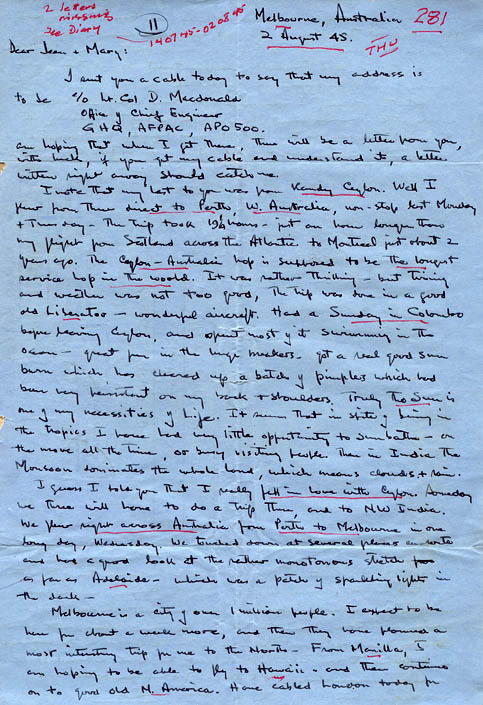 2 letters
missing
see Diary
11
140745-020845
Melbourne, Australia
281
2 August 45.
THU
Dear Jean & Mary:
I sent you a cable today to say that my address is
to be c/o Lt. Col D. Macdonald
Office of Chief Engineer
GHQ, AFPAC, APO 500.
am hoping that when I get there, there will be a letter from you,
with luck, if you get my cable and understand it, a letter
written right away should catch me.
I note that my last to you was from Kandy Ceylon. Well I
flew from there direct to Perth, W. Australia, non-stop last Monday
& Tuesday - The trip took hours - just an hour longer than
my flight from Scotland across the Atlantic to Montreal just about 2
years ago. The Ceylon-Australia hop is supposed to be the longest
service hop in the world. It was rather thrilling - but tiring
and weather was not too good, The trip was done in a good
old Liberator - wonderful aircraft. Had a Sunday in Colombo
before leaving Ceylon, and spent most of it swimming in the
ocean - great fun in the huge breakers - got a real good sun
burn which has cleared up a batch of pimples which had
been very persistent on my back & shoulders. Truly the Sun is
one of my necessities of life. It seems that in spite of being in
the tropics I have had very little opportunity to sunbathe - on
the move all the time, or busy visiting people. Then in India the
Monsoon dominates the whole land, which means clouds & rain.
I guess I told you that I really fell in love with Ceylon. Someday
we three will have to do a trip there, and to NW India.
We flew right across Australia from Perth to Melbourne in one
long day, Wednesday. We touched down at several places en route
and had a good look at the rather monotonous stretch
as far as Adelaide - which was a patch of sparkling light in
the dark -
Melbourne is a city of over 1 million people. I expect to be
here for about a week more, and then they have planned a
most interesting trip for me to the North - From Manilla, I
am hoping to be able to fly to Hawaii - and then continue
on to good old N. America. Have cabled London today for